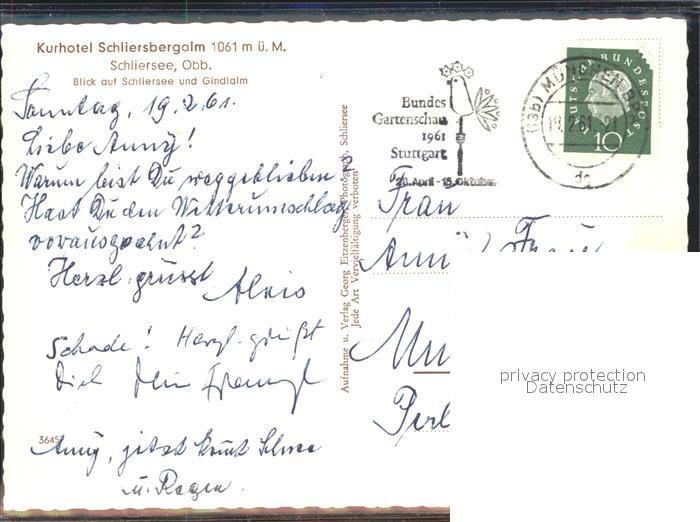 Kurhotel Schliersbergalm 1061 m ü. M.
Schliersee, Obb.
Blick auf Schliersee und Gindlalm
Sonntag, 19.2.61.
Liebe Anny!
Warum bist Du weggeblieben?
Hast Du den Wetterumschlag
vorausgeahnt?
Herzl. grüsst
Alois
Schade! Herzl. grüßt
Dich Dein
Anny, jetzt kommt Schnee
u. Regen.
3645
Aufnahme u. Verlag Georg Eitzenberger, Photograph, Schliersee
Jede Art Vervielfältigung verboten
Bundes
Gartenschau
1961
Stuttgart
28. April - 15. Oktober
(13b) MÜNCHEN BP
19.2.61.-21
dc
DEUTSCHE BUNDESPOST
10
Frau
privacy protection
Datenschutz